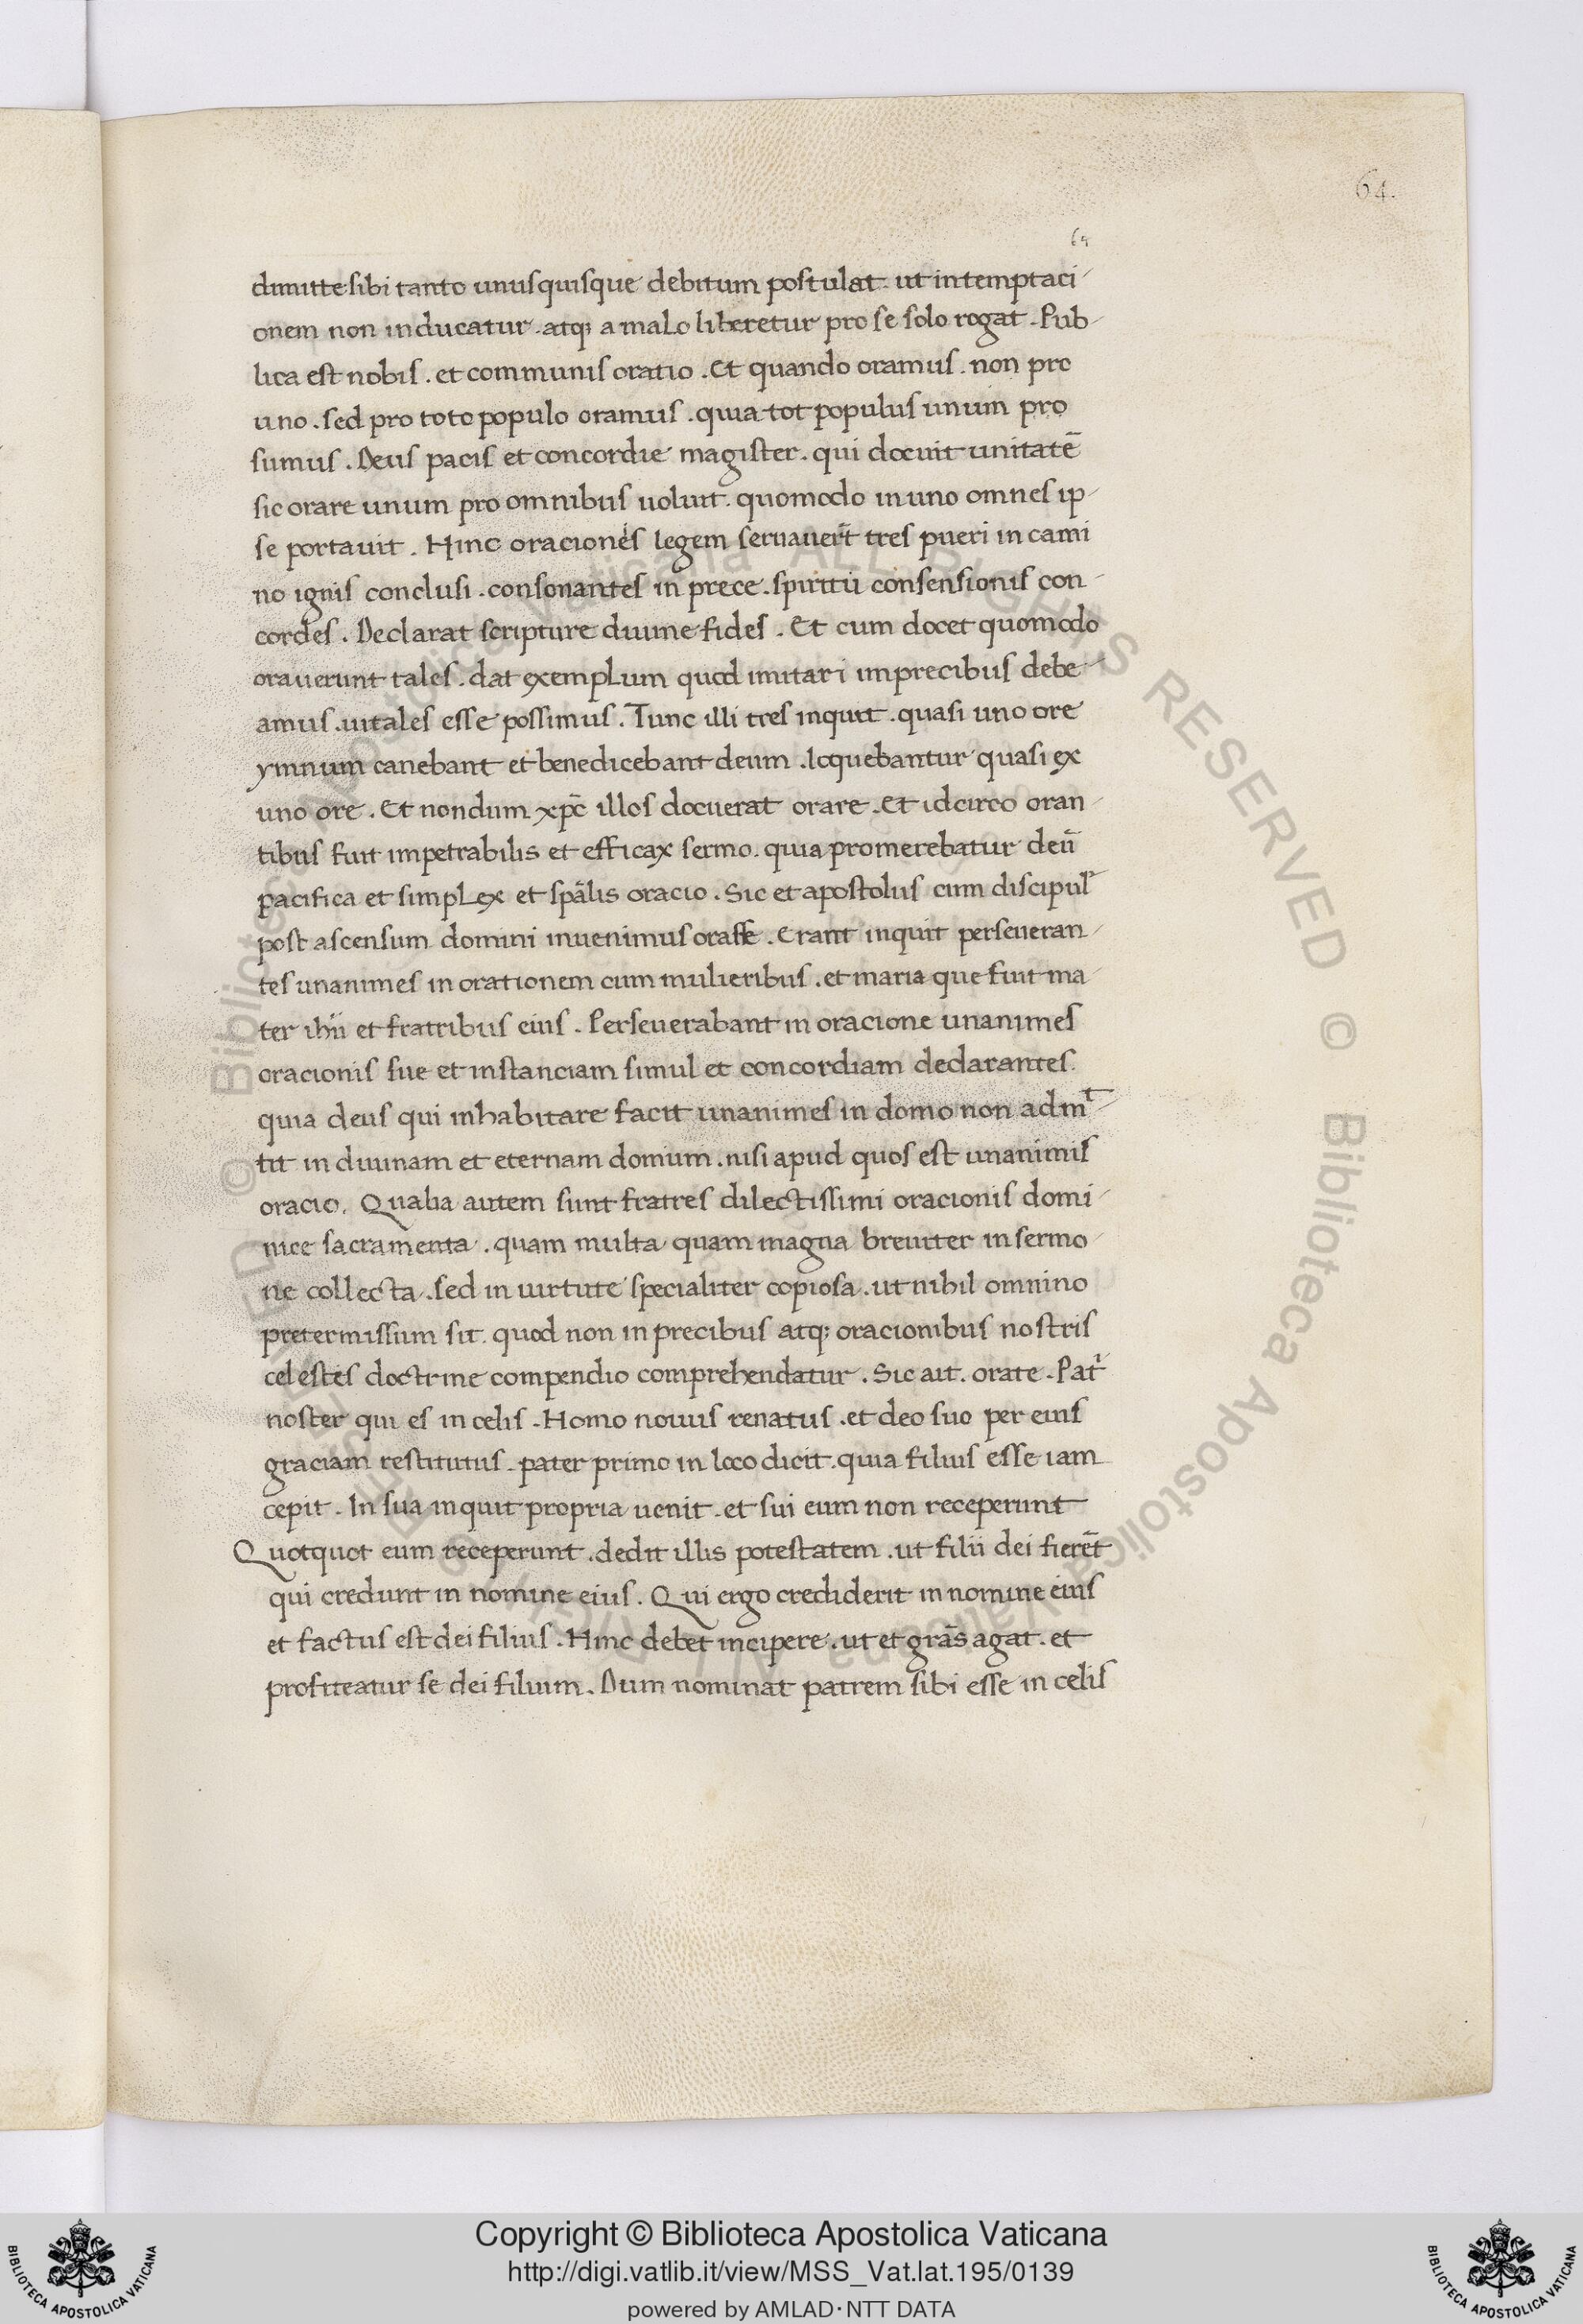 64.
64
dimitte sibi tanto unusquisque debitum postulat. ut in temptaci-
onem non inducatur. atq; a malo liberetur pro se solo rogat. Pub-
lica est nobis. et communis oratio. Et quando oramus. non pro
uno. sed pro toto populo oramus. quia tot populus unum pro
sumus. Deus pacis et concordie magister. qui docuit unitatē
sic orare unum pro omnibus uoluit. quomodo in uno omnes ip-
se portauit. Hinc oracionės legem seruauer̄t tres pueri in cami
no ignis conclusi. consonantes in prece. spiritu consensionis con-
cordes. Declarat scripture diuine fides. Et cum docet quomodo
orauerunt tales. dat exemplum quod imitari in precibus debe-
amus. ut tales esse possimus. Tunc illi tres inquit. quasi uno ore
ymnum canebant et benedicebant deum. loquebantur quasi ex
uno ore. Et nondum xp̄c illos docuerat orare. Et idcirco oran-
tibus fuit impetrabilis et efficax sermo. quia promerebatur deū
pacifica et simplex et spālis oracio. Sic et apostolus cum discipul᷒
post ascensum domini inuenimus orasse. Erant inquit perseueran-
tes unanimes in orationem cum mulieribus. et maria que fuit ma-
ter ihū et fratribus eius. Perseuerabant in oracione unanimes
oracionis sue et instanciam simul et concordiam declarantes.
quia deus qui inhabitare facit unanimes in domo non admⁱ-
tit in diuinam et eternam domum. nisi apud quos est unanimis
oracio. Qualia autem sunt fratres dilectissimi oracionis domi-
nice sacramenta. quam multa quam magna breuiter in sermo-
ne collecta. sed in uirtute specialiter copiosa. ut nihil omnino
pretermissum sit. quod non in precibus atq; oracionibus nostris
celestes doctrine compendio comprehendatur. Sic ait. orate. Pat᷑
noster qui es in celis. Homo nouus renatus. et deo suo per eius
graciam restitutus. pater primo in loco dicit. quia filius esse iam
cepit. In sua inquit propria uenit. et sui eum non receperunt
Quotquot eum receperunt. dedit illis potestatem. ut filii dei fierēt
qui credunt in nomine eius. Qui ergo crediderit in nomine eius
et factus est dei filius. Hinc debet incipere. ut et grās agat. et
profiteatur se dei filium. Dum nominat patrem sibi esse in celis
Copyright © Biblioteca Apostolica Vaticana
http://digi.vatlib.it/view/MSS_Vat.lat.195/0139
powered by AMLAD·NTT DATA
BIBLIOTECA APOSTOLICA VATICANA
BIBLIOTECA APOSTOLICA VATICANA